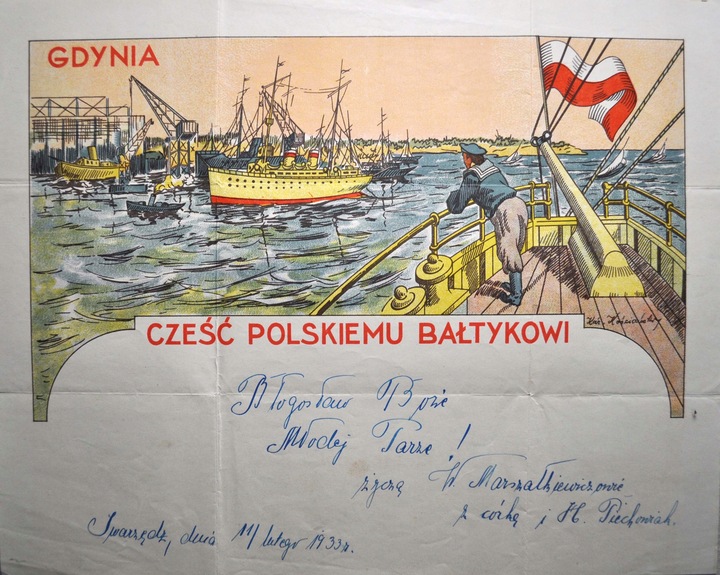 GDYNIA
CZEŚĆ POLSKIEMU BAŁTYKOWI
Błogosław Boże
Młodej Parze!
życzą W. Marszałkiewiczowie
z córką i H. Piechowiak.
Swarzędz, dnia 11/lutego 1933 r.